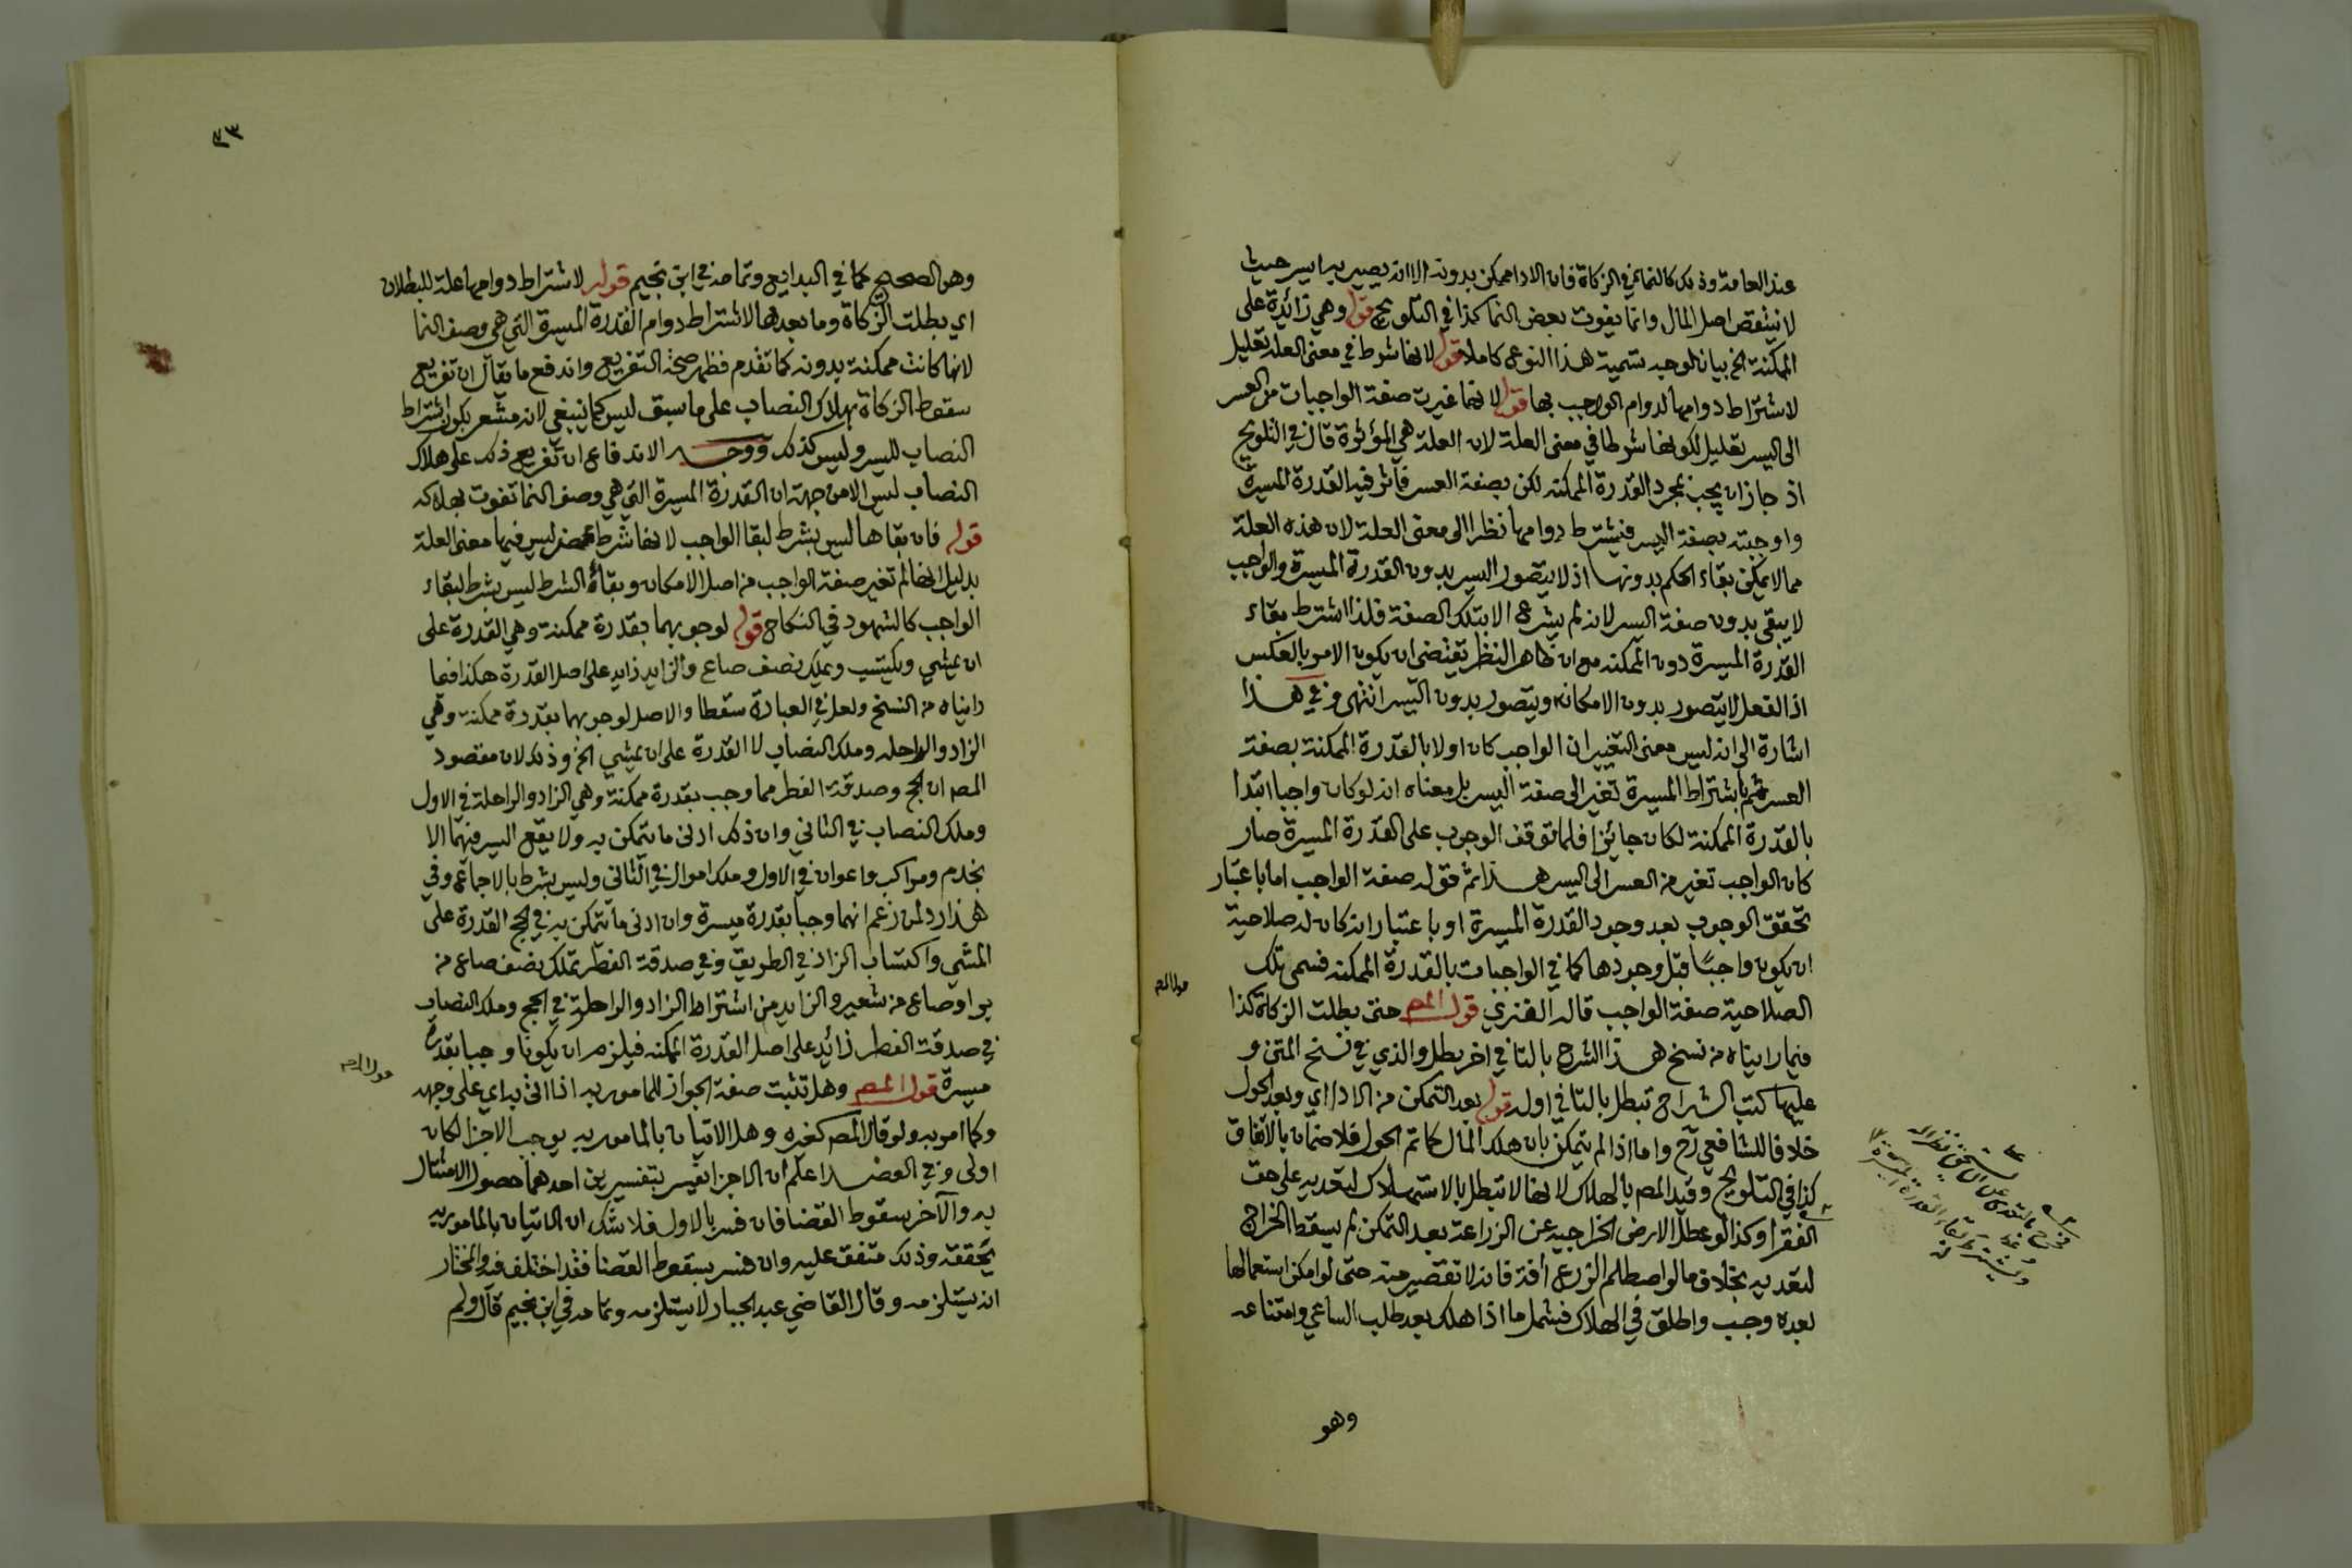 عند العامة وذلك كالنما في الزكاة فان الاداء ممكن بدونه الا انه يصير به ايسر حيث
لا ينتقص اصل المال وانما يفوت بعض النما كذا في التلويح قوله وهي زائدة على
الممكنة الخ بيان لوجه تسمية هذا النوع كاملا قوله لانها شرط في معنى العلة تعليل
لاشتراط دوامها لدوام الواجب بها قوله لانها غيرت صفة الواجبات من العسر
الى اليسر تعليل لكونها شرطا في معنى العلة لان العلة هي المؤثرة قال في التلويح
اذ جاز ان يجب بمجرد القدرة الممكنة لكن بصفة العسر فاثر فيه القدرة الميسرة
واوجبته بصفة اليسر فيشترط دوامها نظرا الى معنى العلة لان هذه العلة
مما لا يمكن بقاء الحكم بدونها اذ لا يتصور اليسر بدون القدرة الميسرة والواجب
لا يبقى بدون صفة اليسر لانه لم يشرع الا بتلك الصفة فلذا اشترط بقاء
القدرة الميسرة دون الممكنة مع ان ظاهر النظر يقتضي ان يكون الامر بالعكس
اذ الفعل لا يتصور بدون الامكان ويتصور بدون اليسر انتهى وفي هذا
اشارة الى انه ليس معنى التغيير ان الواجب كان اولا بالقدرة الممكنة بصفة
العسر ثم باشتراط الميسرة تغير الى صفة اليسر بل معناه انه لو كان واجبا ابتدا
بالقدرة الممكنة لكان جائزا فلما توقف الوجوب على القدرة الميسرة صار
كان الواجب تغير من العسر الى اليسر هذا ثم قوله صفة الواجب اما باعتبار
تحقق الوجوب بعد وجود القدرة الميسرة او باعتبار انه كان له صلاحية
ان يكون واجبا قبل وجودها كما في الواجبات بالقدرة الممكنة فسمى تلك
الصلاحية صفة الواجب قاله الفنري قول المص حتى بطلت الزكاة كذا
فيما رايناه من نسخ هذا الشرح بالتا في اخر بطل والذي في نسخ المتن و
عليها كتب الشراح تبطل بالتا في اوله قوله بعد التمكن من الادا اي وبعد الحول
خلافا للشافعي رح واما اذا لم يتمكن بان هلك المال كما تم الحول فلا ضمان بالاتفاق
كذا في التلويح وقيد المص بالهلاك لانها لا تبطل بالاستهلاك لتعديه على حق
الفقرا وكذا لو عطل الارض الخراجية عن الزراعة بعد التمكن لم يسقط الخراج
لتعديه بخلاف ما لو اصطلم الزرع آفة فانه لا تقصير منه حتى لو امكن استعمالها
بعده وجب واطلق في الهلاك فشمل ما اذا هلك بعد طلب الساعي وامتناعه
وهو
٤٣
وهو الصحيح كما في البدايع وتمامه في ابن نجيم قوله لاشتراط دوامها علة للبطلان
اي بطلت الزكاة وما بعدها لاشتراط دوام القدرة الميسرة التي هي وصف النما
لانها كانت ممكنة بدونه كما تقدم فظهر صحة التفريع واندفع ما يقال ان تفريع
سقوط الزكاة بهلاك النصاب على ما سبق ليس كما ينبغي لانه مشعر بكون اشتراط
النصاب لليسر وليس كذلك ووجه الاندفاع ان تفريع ذلك على هلاك
النصاب ليس الا من جهة ان القدرة الميسرة التي هي وصف النما تفوت بهلاكه
قوله فان بقاها ليس بشرط لبقا الواجب لانها شرط محض ليس فيها معنى العلة
بدليل انها لم تغير صفة الواجب من اصل الامكان وبقاء الشرط ليس بشرط لبقاء
الواجب كالشهود في النكاح قوله لوجوبهما بقدرة ممكنة وهي القدرة على
ان يمشي ويكتسب ويملك نصف صاع والزايد زايد على اصل القدرة هكذا فيما
رايناه من النسخ ولعل في العبارة سقطا والاصل لوجوبهما بقدرة ممكنة وهي
الزاد والراحلة وملك النصاب لا القدرة على ان يمشي الخ وذلك لان مقصود
المص ان الحج وصدقة الفطر مما وجب بقدرة ممكنة وهي الزاد والراحلة في الاول
وملك النصاب في الثاني وان ذلك ادنى ما يتمكن به ولا يقع اليسر فيهما الا
بخدم ومراكب واعوان في الاول وملك اموال في الثاني وليس بشرط بالاجماع وفي
هذا رد لمن زعم انهما وجبا بقدرة ميسرة وان ادنى ما يتمكن به في الحج القدرة على
المشي واكتساب الزاد في الطريق وفي صدقة الفطر تملك نصف صاع من
بر او صاع من شعير والزايد من اشتراط الزاد والراحلة في الحج وملك النصاب
في صدقة الفطر زائد على اصل القدرة الممكنة فيلزم ان يكونا وجبا بقدرة
ميسرة قول المص وهل تثبت صفة الجواز للمامور به اذا اتى به اي على وجهه
وكما امر به ولو قال المص كغيره وهل الاتيان بالمامور به يوجب الاجزا لكان
اولى وفي العضد اعلم ان الاجزا يفسر بتفسيرين احدهما حصول الامتثال
به والآخر سقوط القضا فان فسر بالاول فلا شك ان الاتيان بالمامور به
يحققه وذلك متفق عليه وان فسر بسقوط القضا فقد اختلف فيه والمختار
انه يستلزمه وقال القاضي عبد الجبار لا يستلزمه وتمامه في ابن نجيم قال ولم